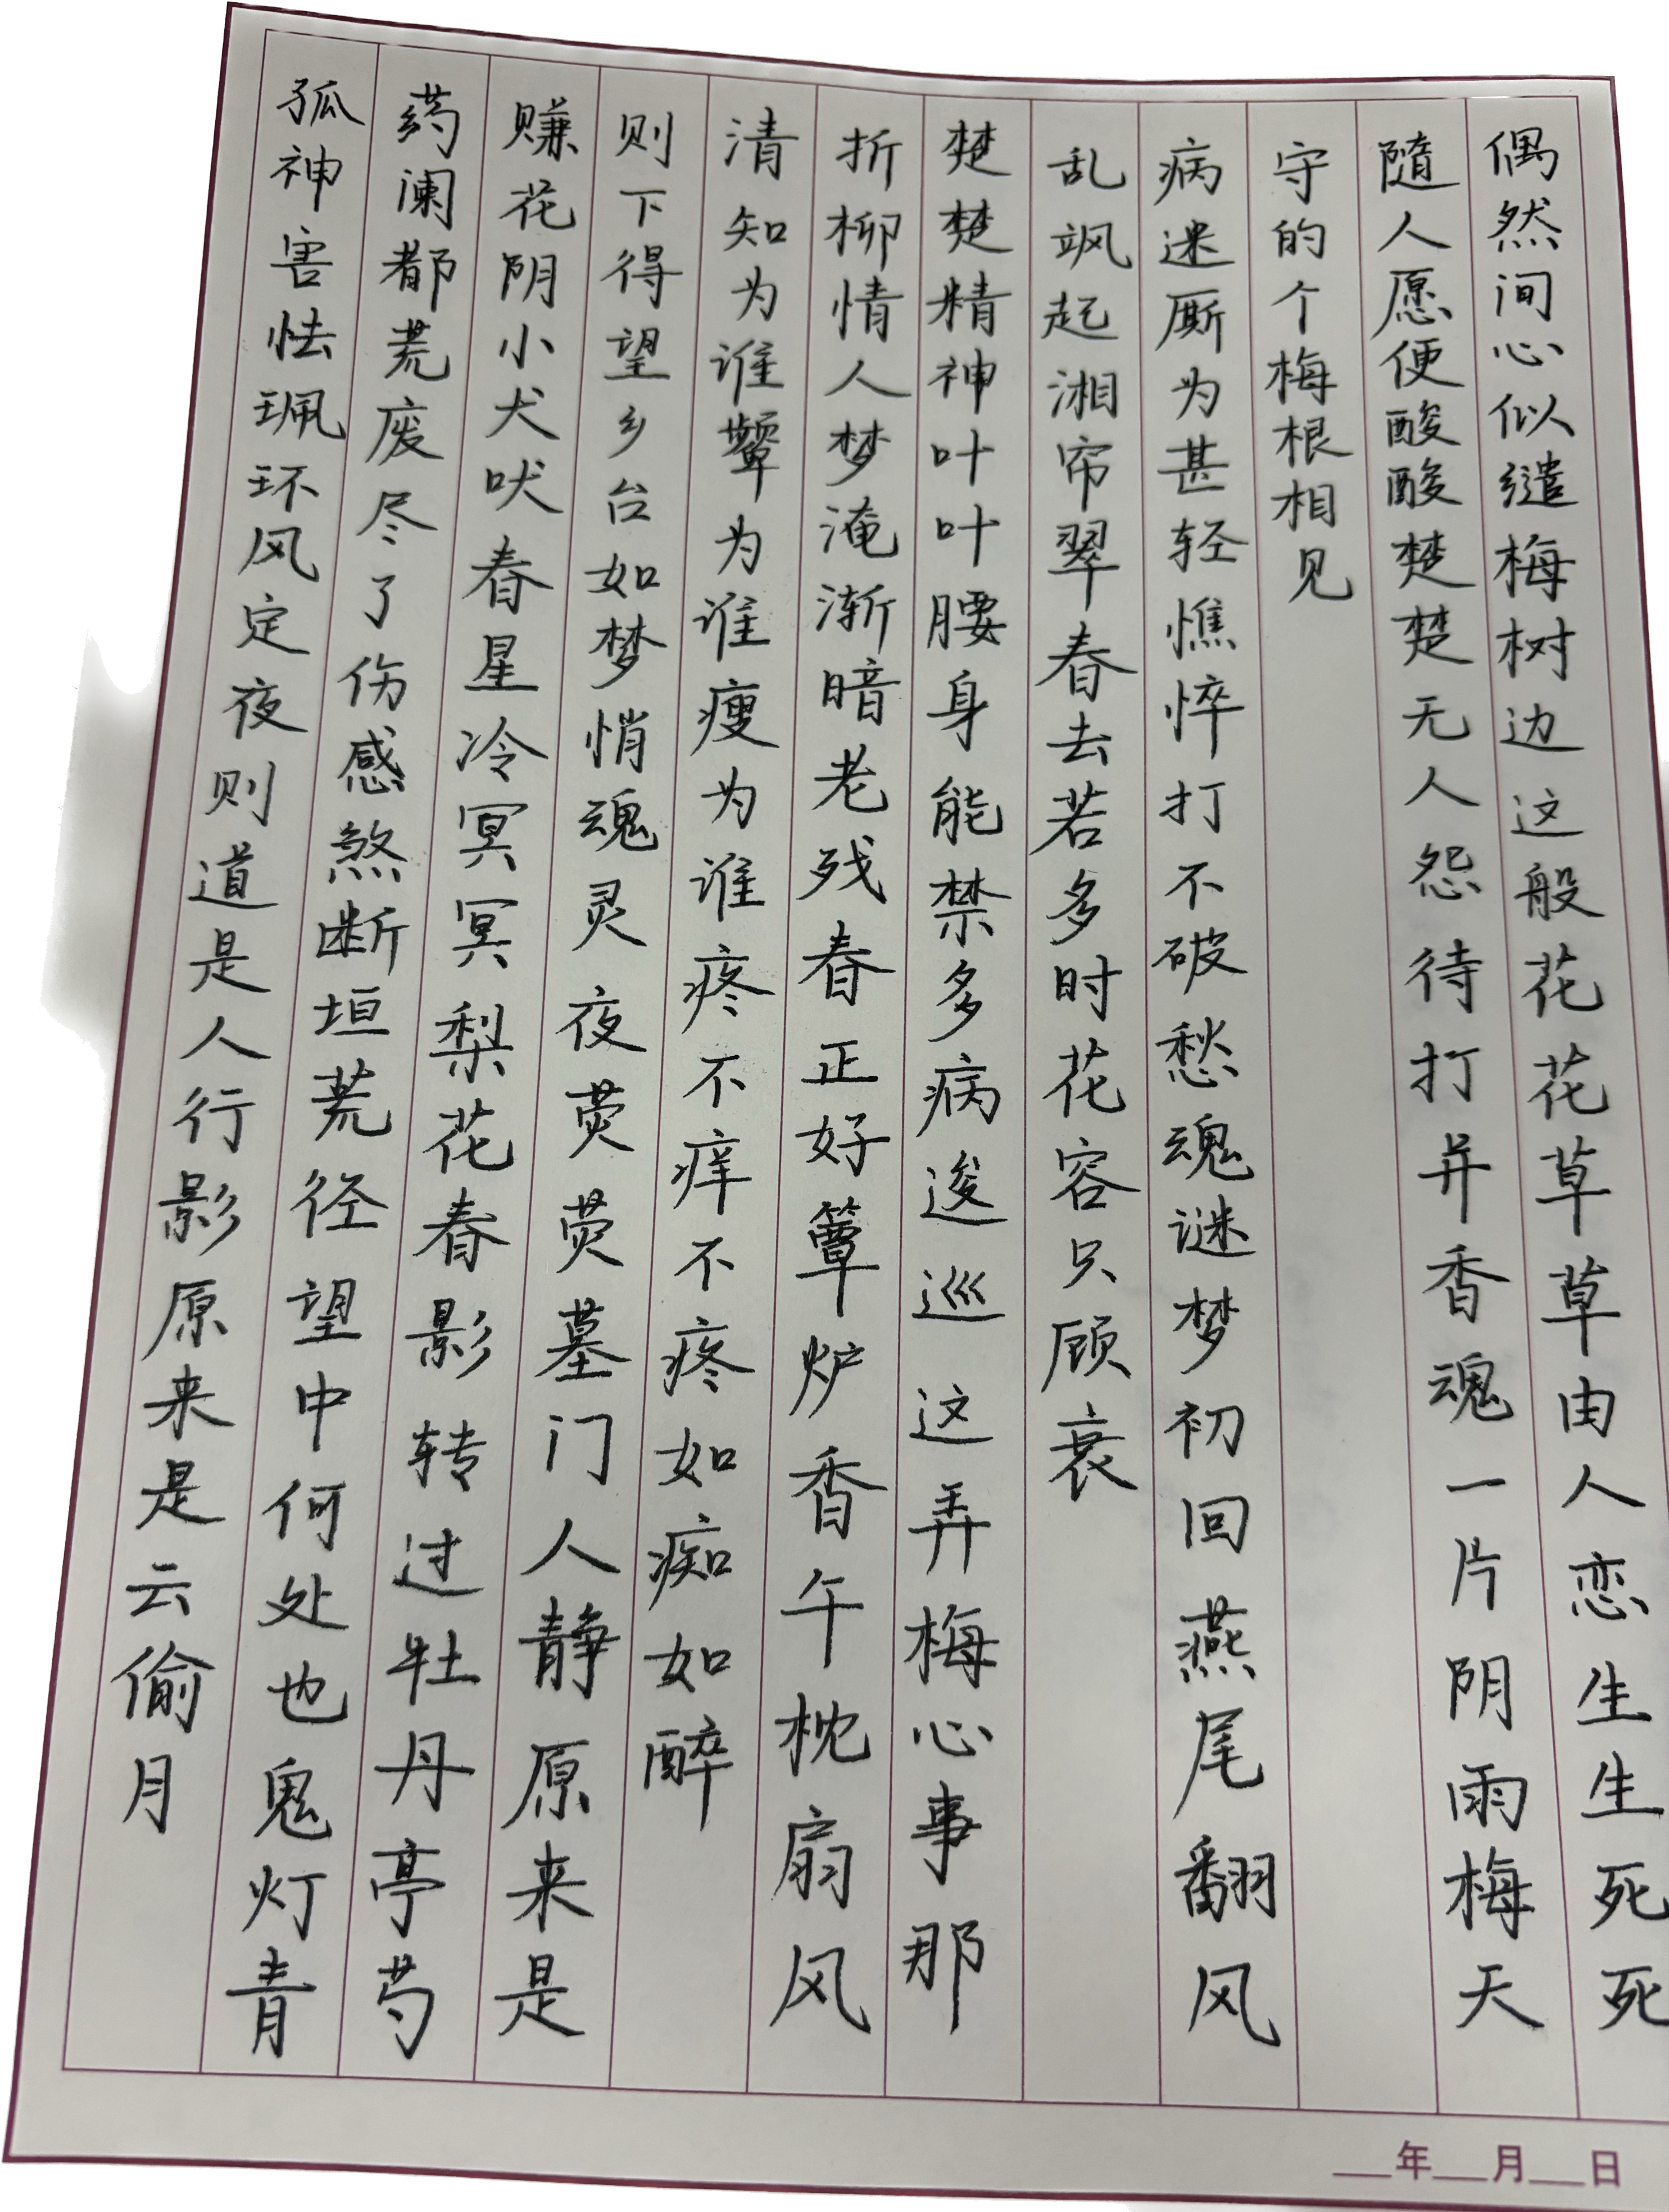 偶然间心似缱梅树边这般花花草草由人恋生生死死
随人愿便酸酸楚楚无人怨待打并香魂一片阴雨梅天
守的个梅根相见
病迷厮为甚轻憔悴打不破愁魂谜梦初回燕尾翻风
乱飒起湘帘翠春去若多时花容只顾衰
楚楚精神叶叶腰身能禁多病逡巡这弄梅心事那
折柳情人梦淹渐暗老残春正好簟炉香午枕扇风
清知为谁颦为谁瘦为谁疼不痒不疼如痴如醉
则下得望乡台如梦悄魂灵夜荧荧墓门人静原来是
赚花阴小犬吠春星冷冥冥梨花春影转过牡丹亭芍
药阑都荒废尽了伤感煞断垣荒径望中何处也鬼灯青
孤神害怯珮环风定夜则道是人行影原来是云偷月
年 月 日